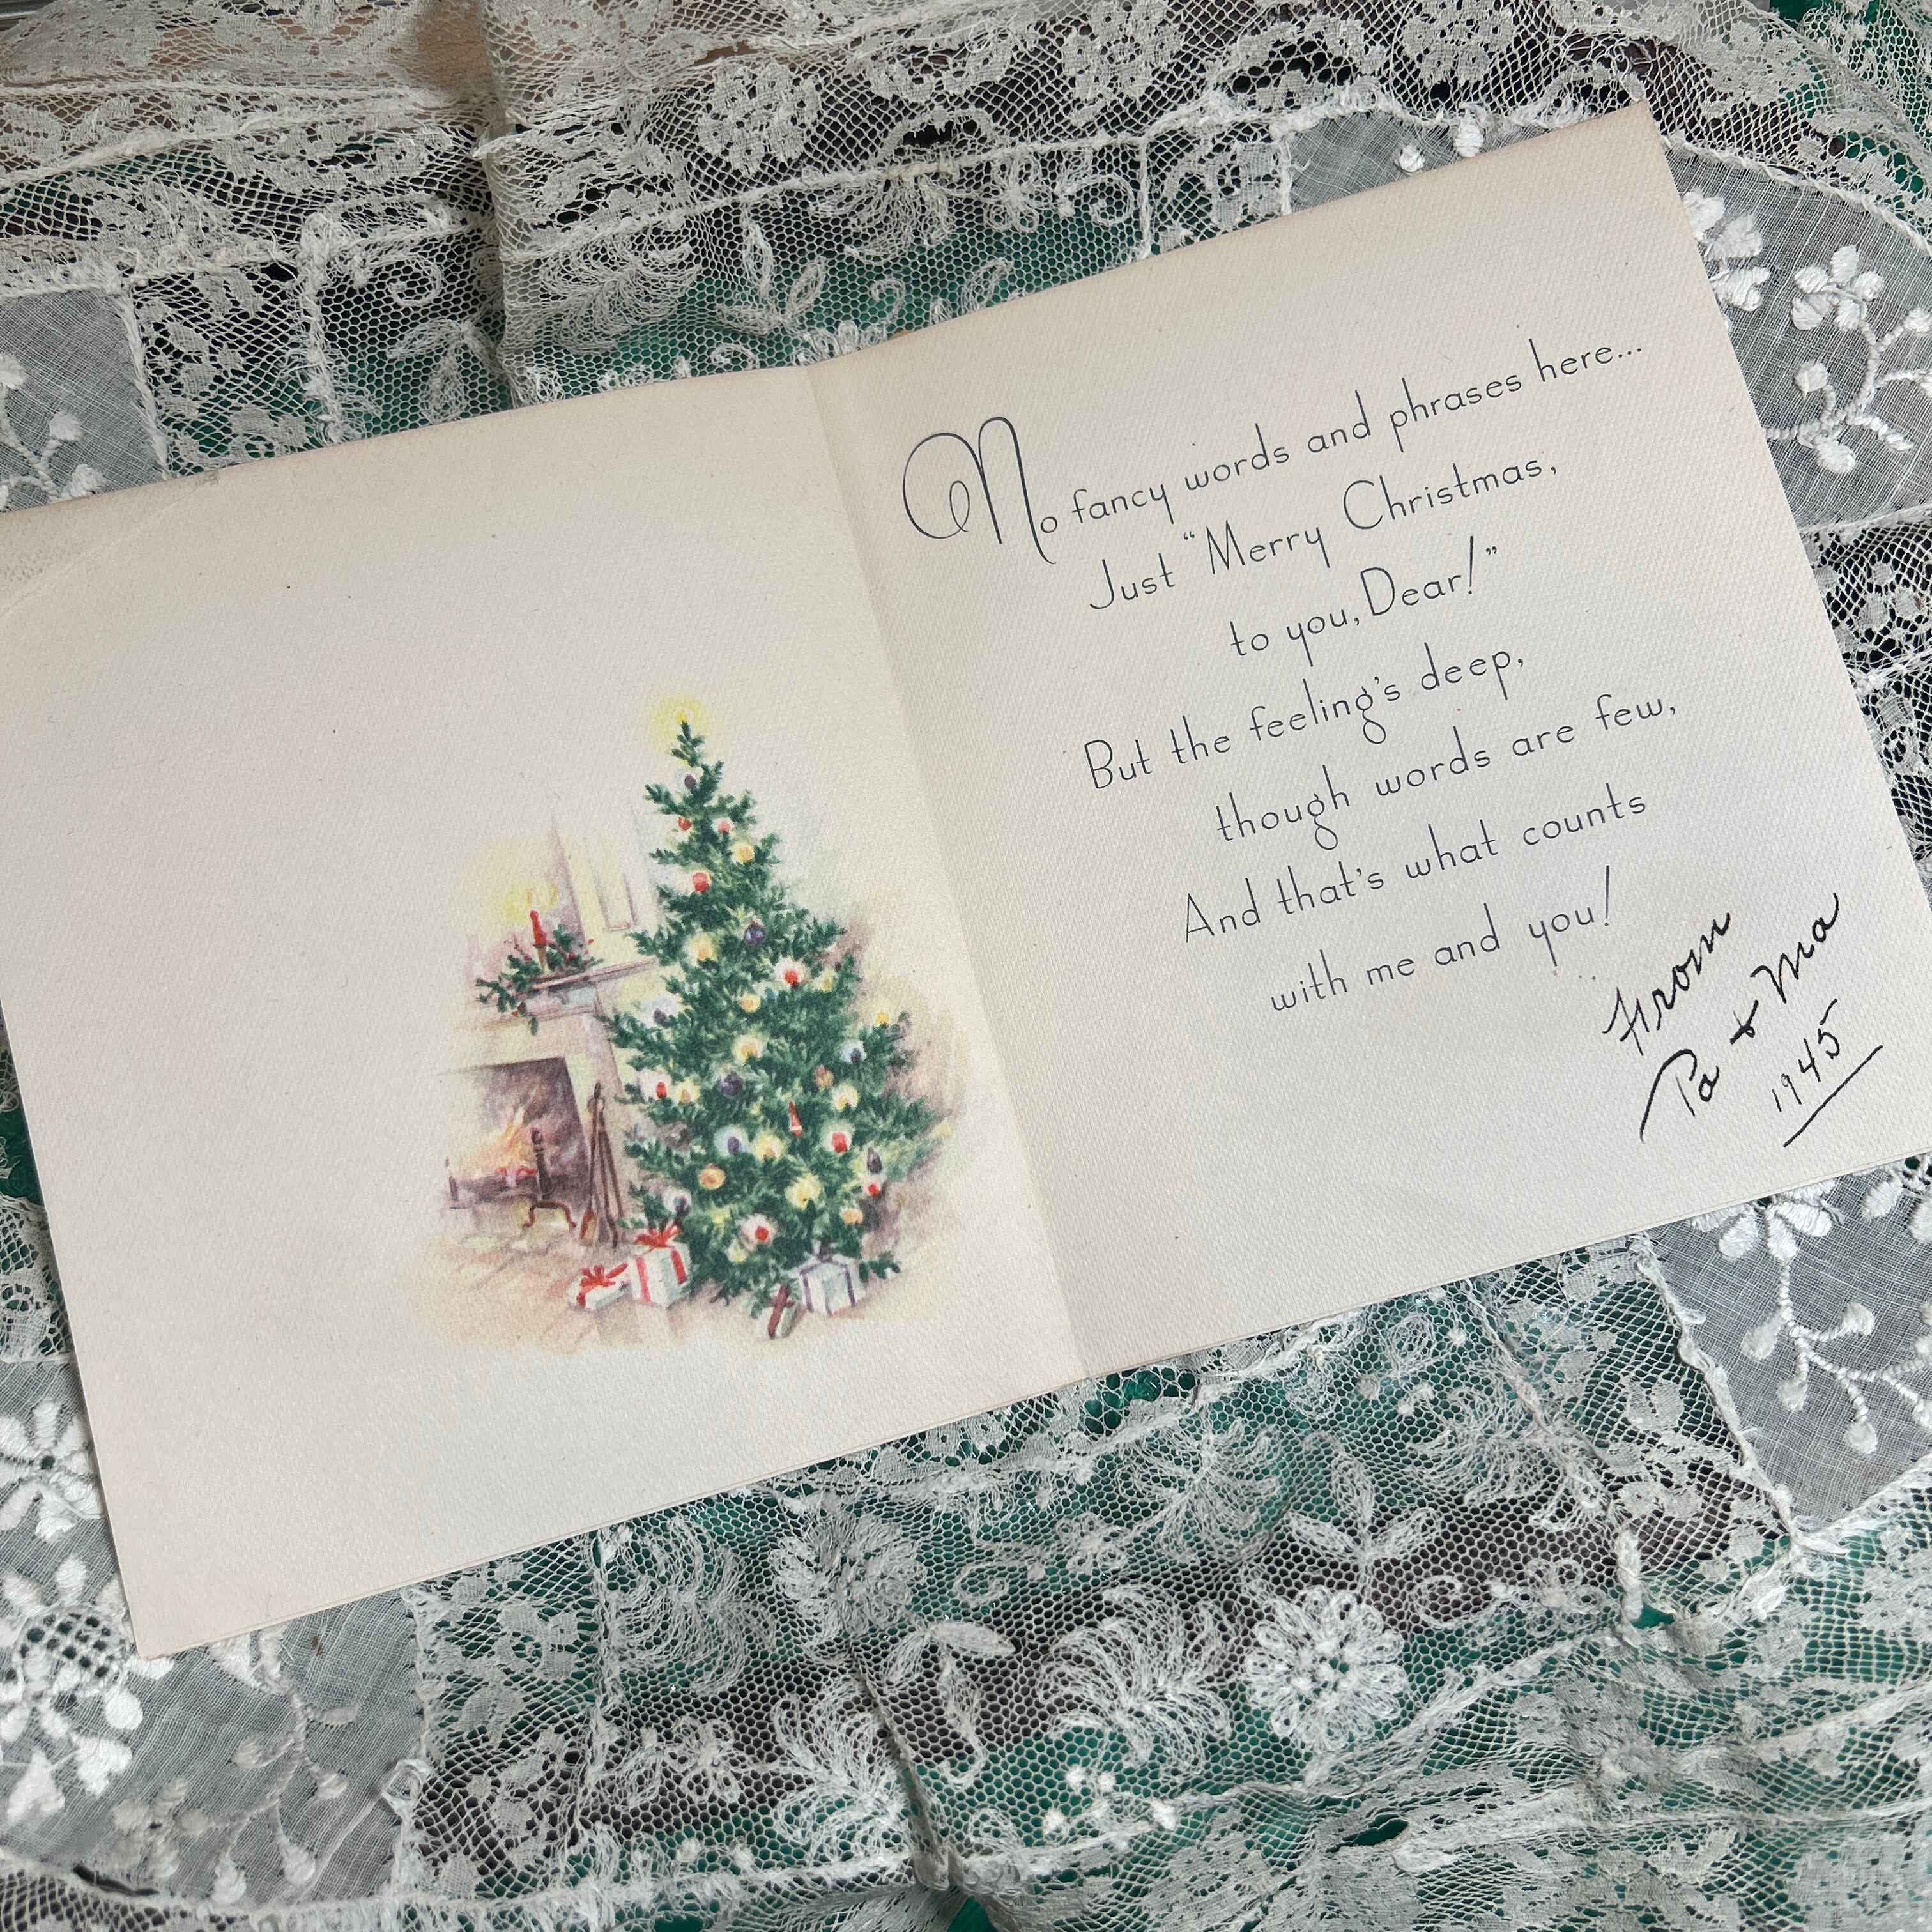 No fancy words and phrases here...
Just "Merry Christmas,
to you, Dear!"
But the feeling's deep,
though words are few,
And that's what counts
with me and you!
From
Pa & Ma
1945